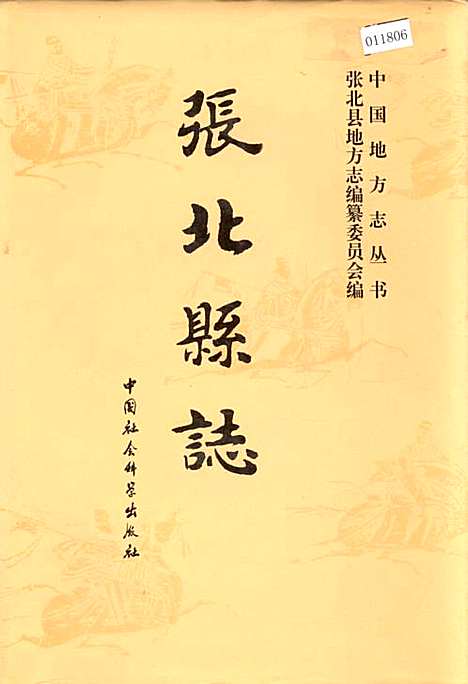 011806
中国地方志丛书
张北县地方志编纂委员会编
張北縣誌
中国社会科学出版社